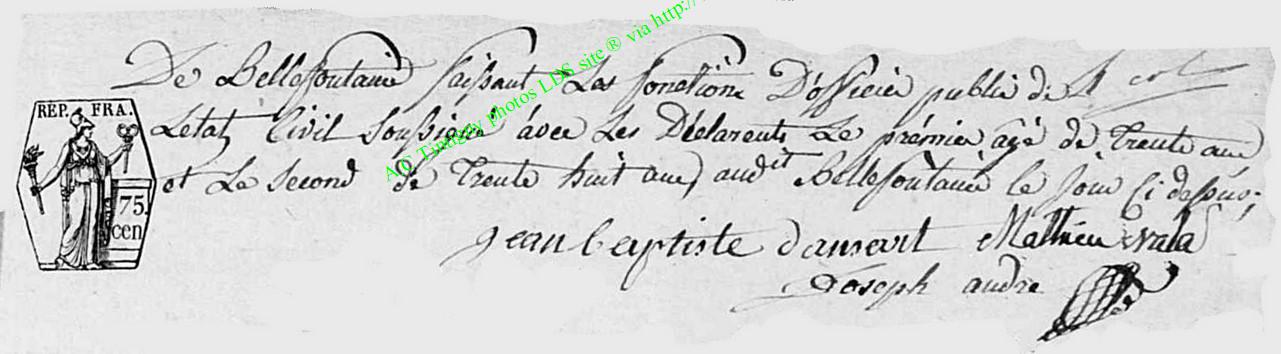 De Bellefontaine faissant Les fonctions D'officier public de
L'etat Civil Soussigné avec Les Déclarents Le prémier agé de trente ans
et Le second de trente huit ans, audit Bellefontaine le jour Ci dessus;
REP. FRA.
75.
cen
jean baptiste dansart Mathieu
Joseph andre
AC Tintigny photos LDS site ® via http:/